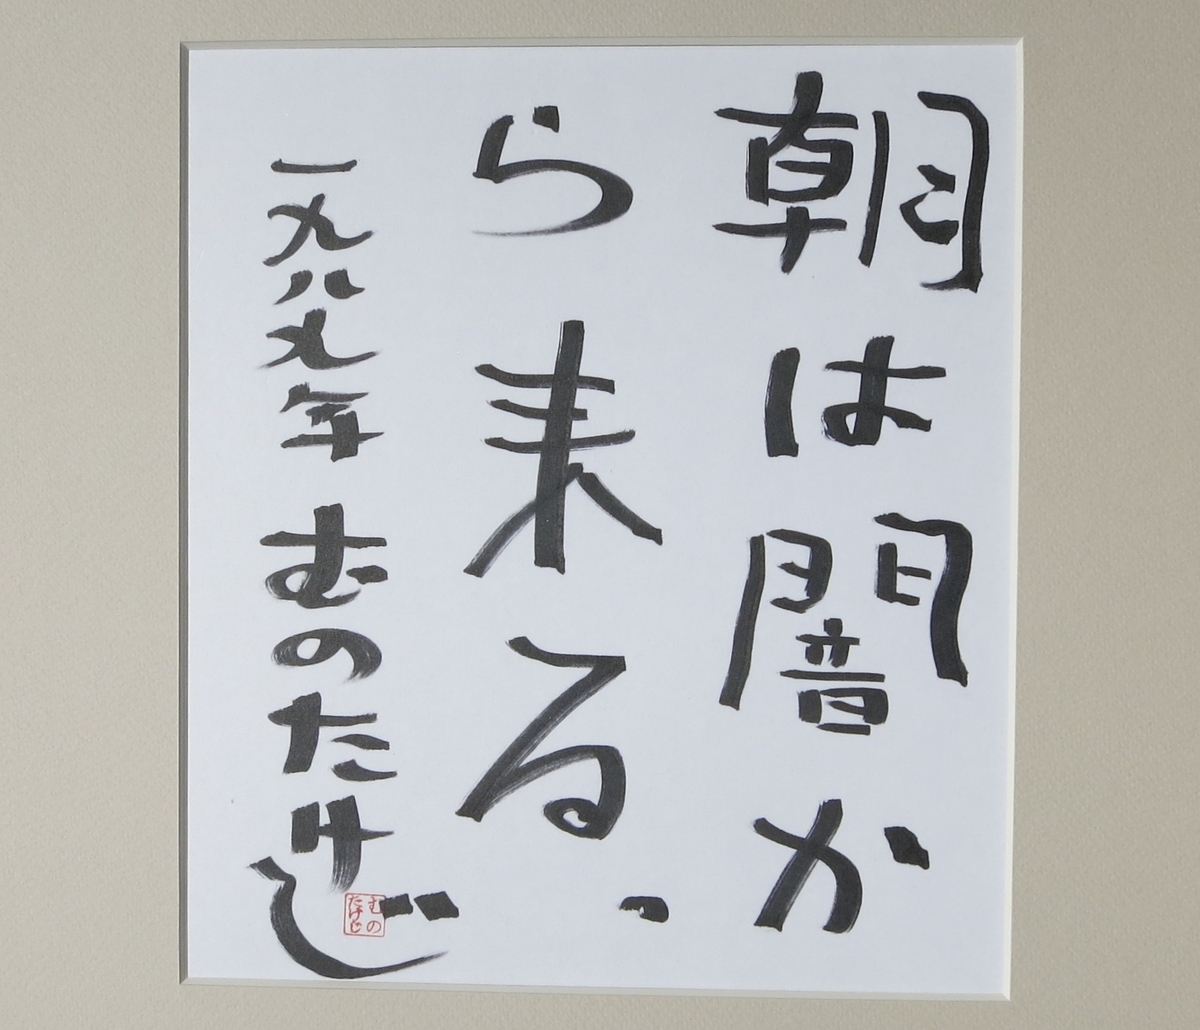 朝は闇か
ら来る、
一九八九年 むのたけじ
むの
たけじ